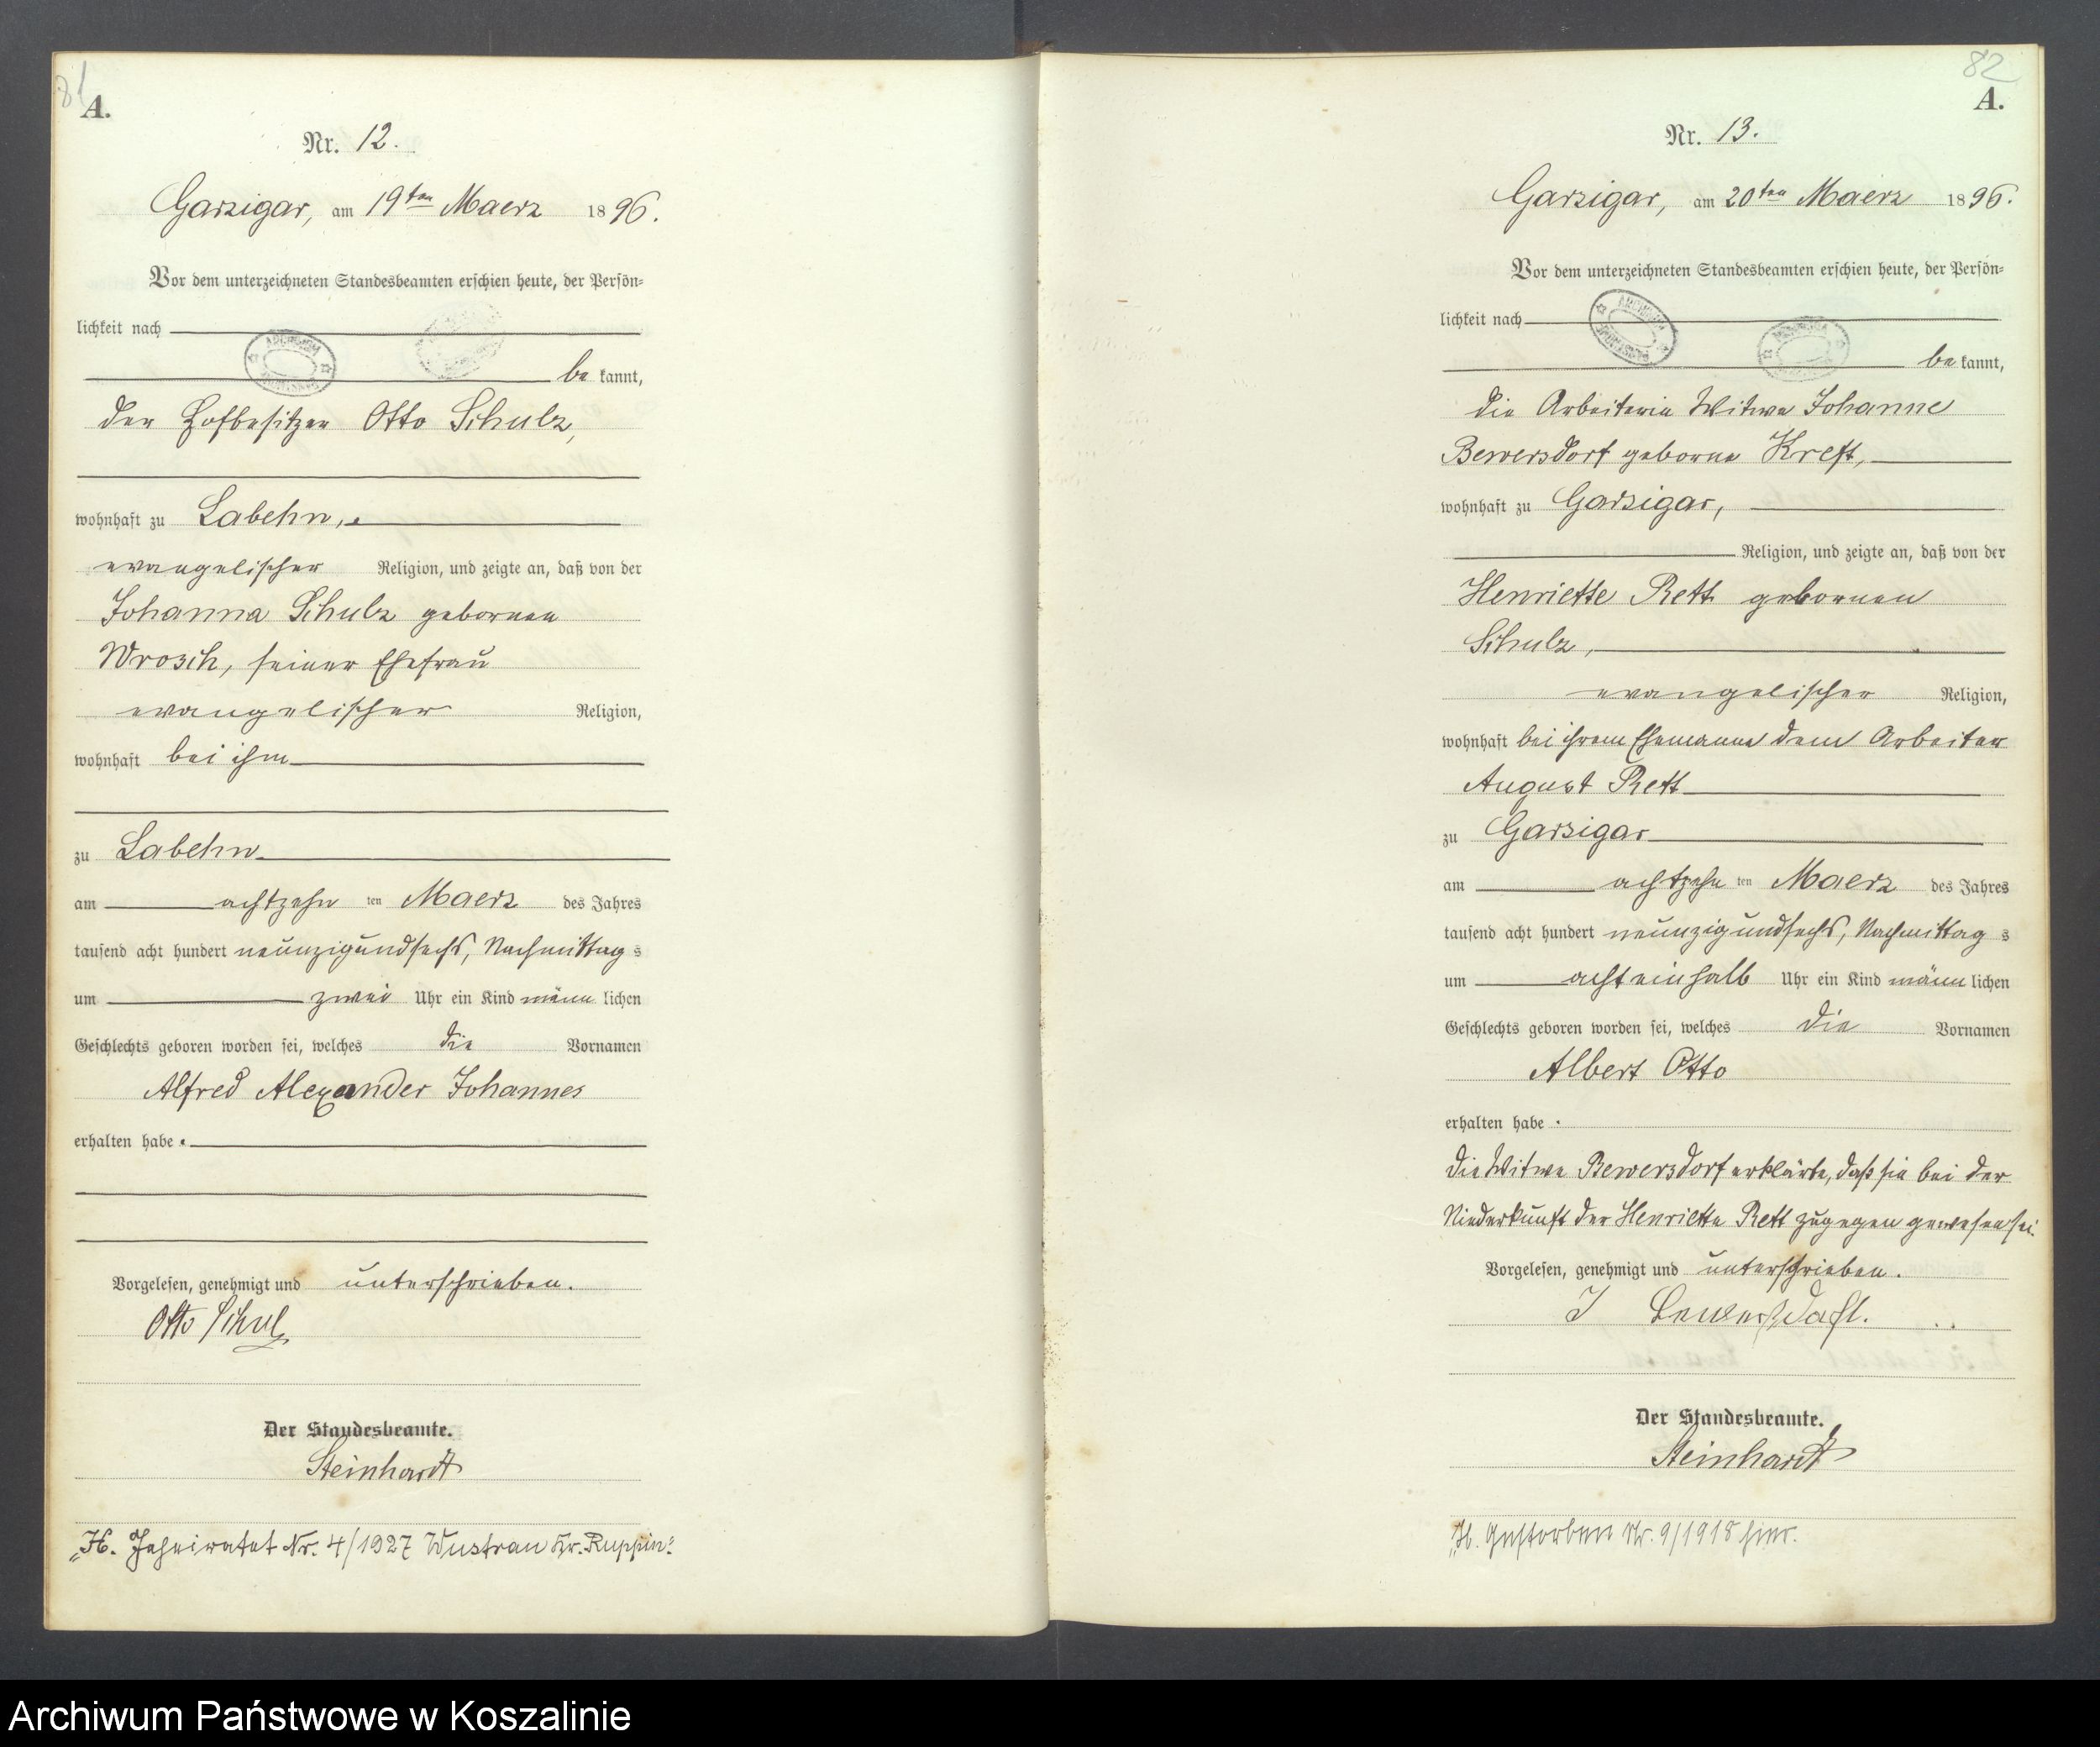 81
A.
Nr. 12.
Garzigar, am 19ten Maerz 1896.
Vor dem unterzeichneten Standesbeamten erschien heute, der Persön-
lichkeit nach
be kannt,
der Hofbesitzer Otto Schulz,
wohnhaft zu Labehn,
evangelischer Religion, und zeigte an, daß von der
Johanna Schulz geborenen
Wrosch, seiner Ehefrau
evangelischer Religion,
wohnhaft bei ihm
zu Labehn
am achtzehn ten Maerz des Jahres
tausend acht hundert neunzigundsechs, Nachmittag s
um zwei Uhr ein Kind männ lichen
Geschlechts geboren worden sei, welches die Vornamen
Alfred Alexander Johannes
erhalten habe.
Vorgelesen, genehmigt und unterschrieben.
Otto Schulz
Der Standesbeamte.
Steinhardt
„H. Geheiratet Nr. 4/1927 Wustrau Kr. Ruppin."
82
A.
Nr. 13.
Garzigar, am 20ten Maerz 1896.
Vor dem unterzeichneten Standesbeamten erschien heute, der Persön-
lichkeit nach
be kannt,
die Arbeiterin Witwe Johanne
Bewersdorf geborne Kreft,
wohnhaft zu Garzigar,
Religion, und zeigte an, daß von der
Henriette Rett geborenen
Schulz,
evangelischer Religion,
wohnhaft bei ihrem Ehemanne dem Arbeiter
August Rett
zu Garzigar
am achtzehn ten Maerz des Jahres
tausend acht hundert neunzigundsechs, Nachmittag s
um achteinhalb Uhr ein Kind männ lichen
Geschlechts geboren worden sei, welches die Vornamen
Albert Otto
erhalten habe.
Die Witwe Bewersdorf erklärte, daß sie bei der
Niederkunft der Henriette Rett zugegen gewesen sei.
Vorgelesen, genehmigt und unterschrieben.
J Bewersdorf.
Der Standesbeamte.
Steinhardt
„H. Gestorben Nr. 9/1918 hier.
Archiwum Państwowe w Koszalinie